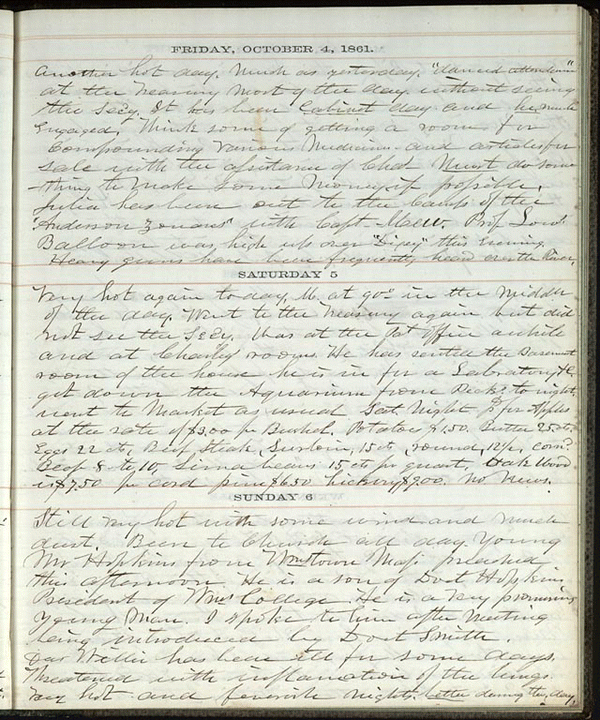 FRIDAY, OCTOBER 4, 1861.
Another hot day. Much as yesterday. "danced attendance"
at the Treasury most of the day without seeing
the Secy. It has been Cabinet day and he much
Engaged. Think some of getting a room for
Compounding various Medicines and articles for
Sale with the assistance of Chas. Must do some
-thing to make some money if possible.
Julia has been out to the Camp of the
"Anderson Zouaves" with Capt Prof Lows
Balloon was high up over "Dixey" this evening.
Heavy guns have been frequently heard over the River.
SATURDAY 5
Very hot again today, M. at 90° in the middle
of the day. Went to the Treasury again but did
not see the Secy. Was at the Pat office awhile
and at Charleys rooms. He has rented the basement
room of the house he is in for a Labratory, &c
got down the Aquarium from Pecks to night,
went to Market as usual Sat Night for Apples
at the rate of $3.00 pr Bushel. Potatoes $1.50. Butter 25 cts.
Eggs 22 cts, Beef Steak, Surloin, 15 cts, round, 12½, corn'd
Beef 8 to 10, Lima beans 15 cts pr quart. Oak Wood
is $7.50 pr cord pine $6.50 hickory $9.00. No News.
SUNDAY 6
Still very hot with some wind and much
dust. Been to Church all day. Young
Mr Hopkins from Wmstown Mass preached
this afternoon. He is a son of Doct Hopkins
President of Wms College. He is a very promising
young Man. I spoke to him after meeting
being introduced by Doct Smith.
Our Willie has been ill for some days.
Threatened with inflamation of the lungs.
Very hot and feverish nights, better during the day,